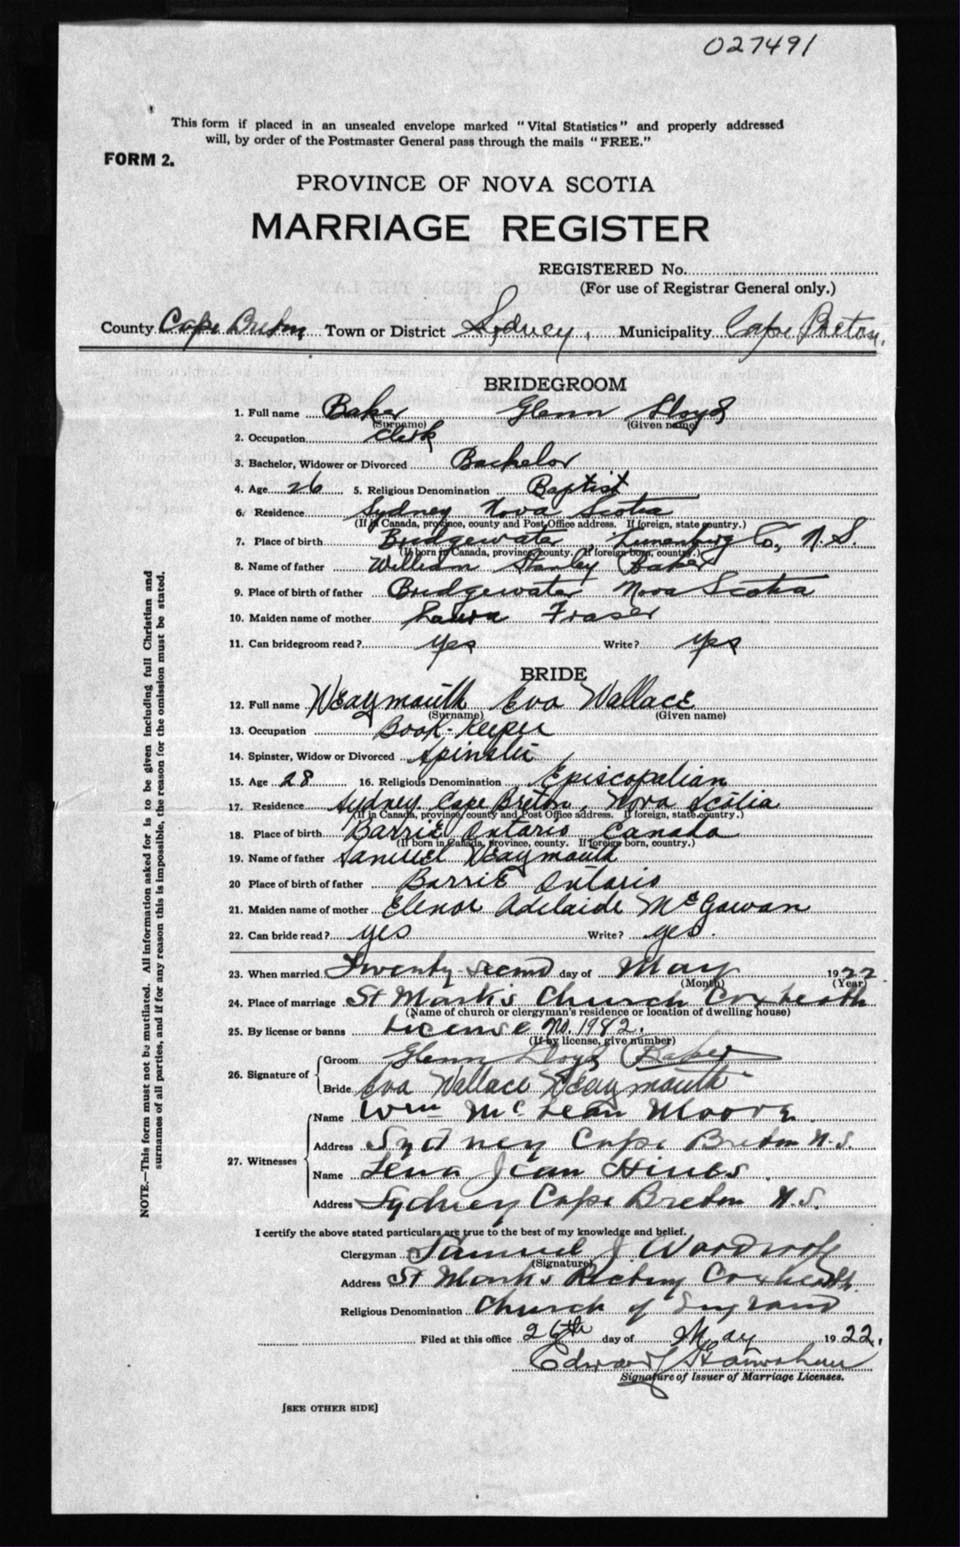 027491
This form if placed in an unsealed envelope marked "Vital Statistics" and properly addressed
will, by order of the Postmaster General pass through the mails "FREE."
FORM 2.
PROVINCE OF NOVA SCOTIA
MARRIAGE REGISTER
REGISTERED No.
(For use of Registrar General only.)
County Cape Breton Town or District Sydney, Municipality Cape Breton.
BRIDEGROOM
1. Full name Baker Glenn Lloyd
(Surname) (Given name)
2. Occupation Clerk
3. Bachelor, Widower or Divorced Bachelor
4. Age 26 5. Religious Denomination Baptist
6. Residence Sydney Nova Scotia
(If in Canada, province, county and Post Office address. If foreign, state country.)
7. Place of birth Bridgewater, Lunenburg Co, N.S.
(If born in Canada, province, county. If foreign born, country.)
8. Name of father William Stanley Baker
9. Place of birth of father Bridgewater Nova Scotia
10. Maiden name of mother Laura Fraser
11. Can bridegroom read? yes Write? yes
BRIDE
12. Full name Weaymouth Eva Wallace
(Surname) (Given name)
13. Occupation Book-Keeper
14. Spinster, Widow or Divorced Spinster
15. Age 28 16. Religious Denomination Episcopalian
17. Residence Sydney, Cape Breton, Nova Scotia
(If in Canada, province, county and Post Office address. If foreign, state country.)
18. Place of birth Barrie Ontario Canada
(If born in Canada, province, county. If foreign born, country.)
19. Name of father Samuel Weaymouth
20 Place of birth of father Barrie Ontario
21. Maiden name of mother Elenor Adelaide McGowan
22. Can bride read? yes Write? yes.
23. When married Twenty-second day of May 1922
(Month) (Year)
24. Place of marriage St Mark's Church Coxheath
(Name of church or clergyman's residence or location of dwelling house)
25. By license or banns License No. 1982.
(If by license, give number)
26. Signature of Groom Glenn Lloyd Baker
Bride Eva Wallace Weaymouth
27. Witnesses Name Wm McLean Moore
Address Sydney Cape Breton N.S.
Name Lena Jean Hines
Address Sydney Cape Breton N.S.
I certify the above stated particulars are true to the best of my knowledge and belief.
Clergyman Samuel J Woodroofe
(Signature)
Address St Mark's Rectory Coxheath.
Religious Denomination Church of England
Filed at this office 26th day of May 1922.
Edward
Signature of Issuer of Marriage Licenses.
[SEE OTHER SIDE]
NOTE.—This form must not be mutilated. All information asked for is to be given including full Christian and
surnames of all parties, and if for any reason this is impossible, the reason for the omission must be stated.